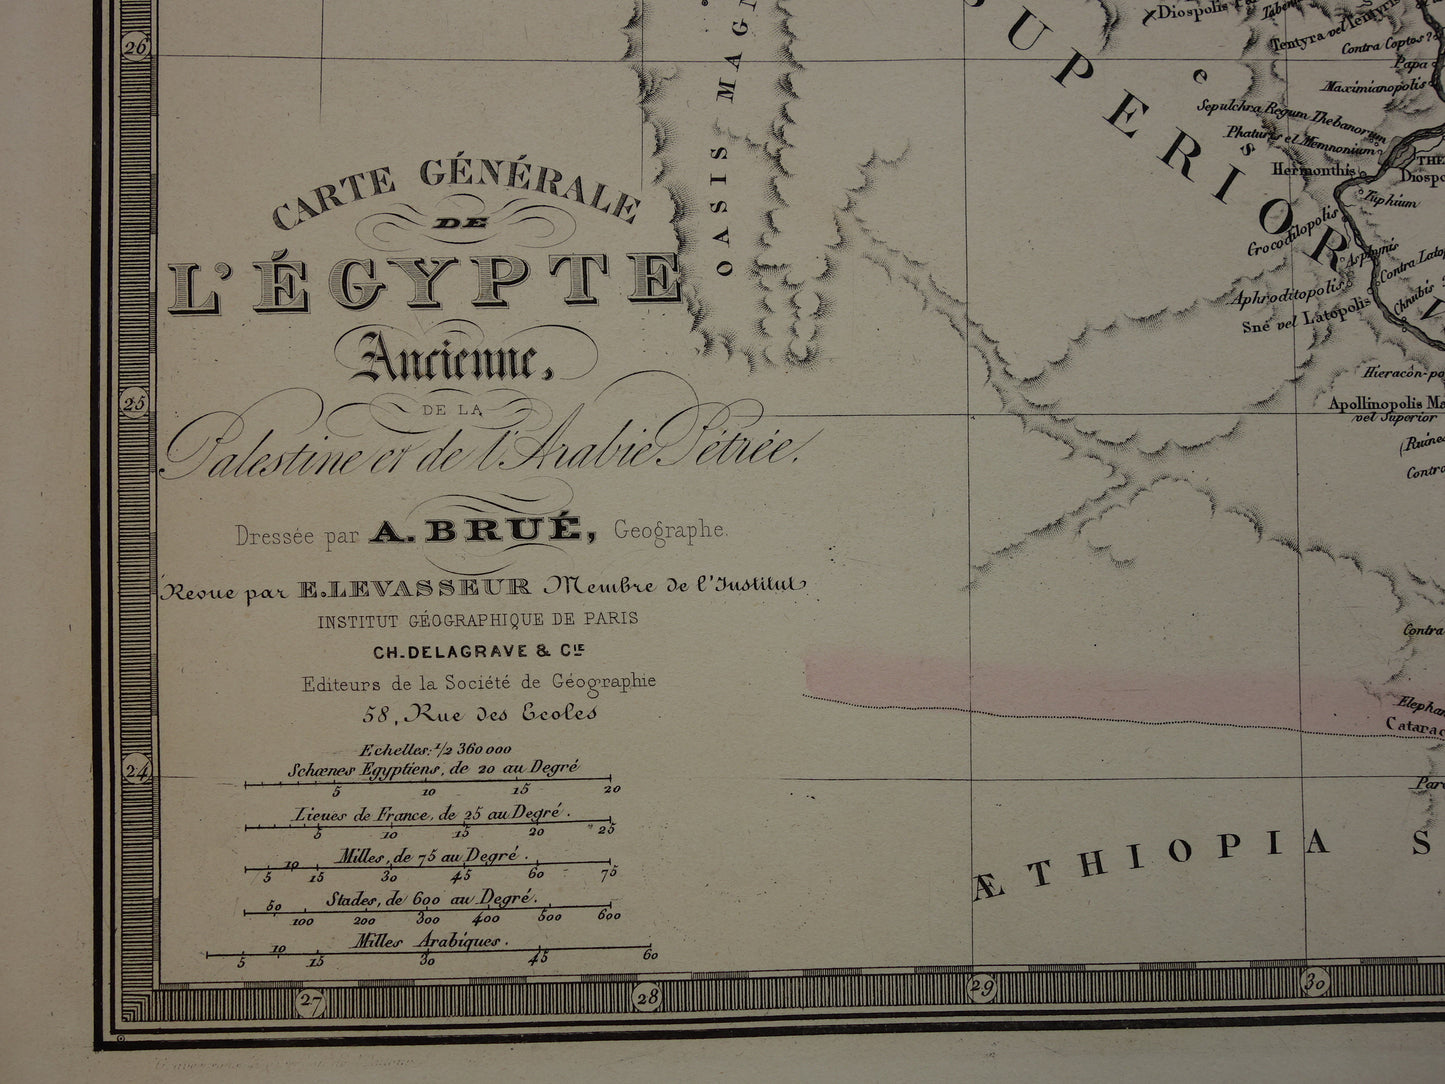 CARTE GÉNÉRALE
DE
L'ÉGYPTE
Ancienne,
DE LA
Palestine et de l'Arabie Pétrée.
Dressée par A. BRUÉ, Geographe.
Revue par E. LEVASSEUR Membre de l'Institut
INSTITUT GÉOGRAPHIQUE DE PARIS
CH. DELAGRAVE & CIE
Editeurs de la Société de Géographie
58, Rue des Ecoles
Echelles: 1/2 360 000
Schœnes Egyptiens, de 20 au Degré
5 10 15 20
Lieues de France, de 25 au Degré.
5 10 15 20 25
Milles, de 75 au Degré.
5 10 15 30 45 60 75
Stades, de 600 au Degré.
50 100 200 300 400 500 600
Milles Arabiques.
5 10 15 30 45 60
26
25
24
27 28 29 30
OASIS MAG
SUPERIOR
e
s
V
Diospolis
Tentyra vel Tentyris
Contra Coptos?
Papa
Maximianopolis
Sepulchra Regum Thebanorum
Phaturis el Memnonium
THE
Hermonthis
Diospo
Tuphium
Crocodilopolis
Asphynis
Contra Lato
Aphroditopolis
Chnubis
Sné vel Latopolis
Hieracôn-po
Apollinopolis Ma
vel Superior
(Ruine
Contra
Contra
Elephan
Catarac
Par
ÆTHIOPIA S